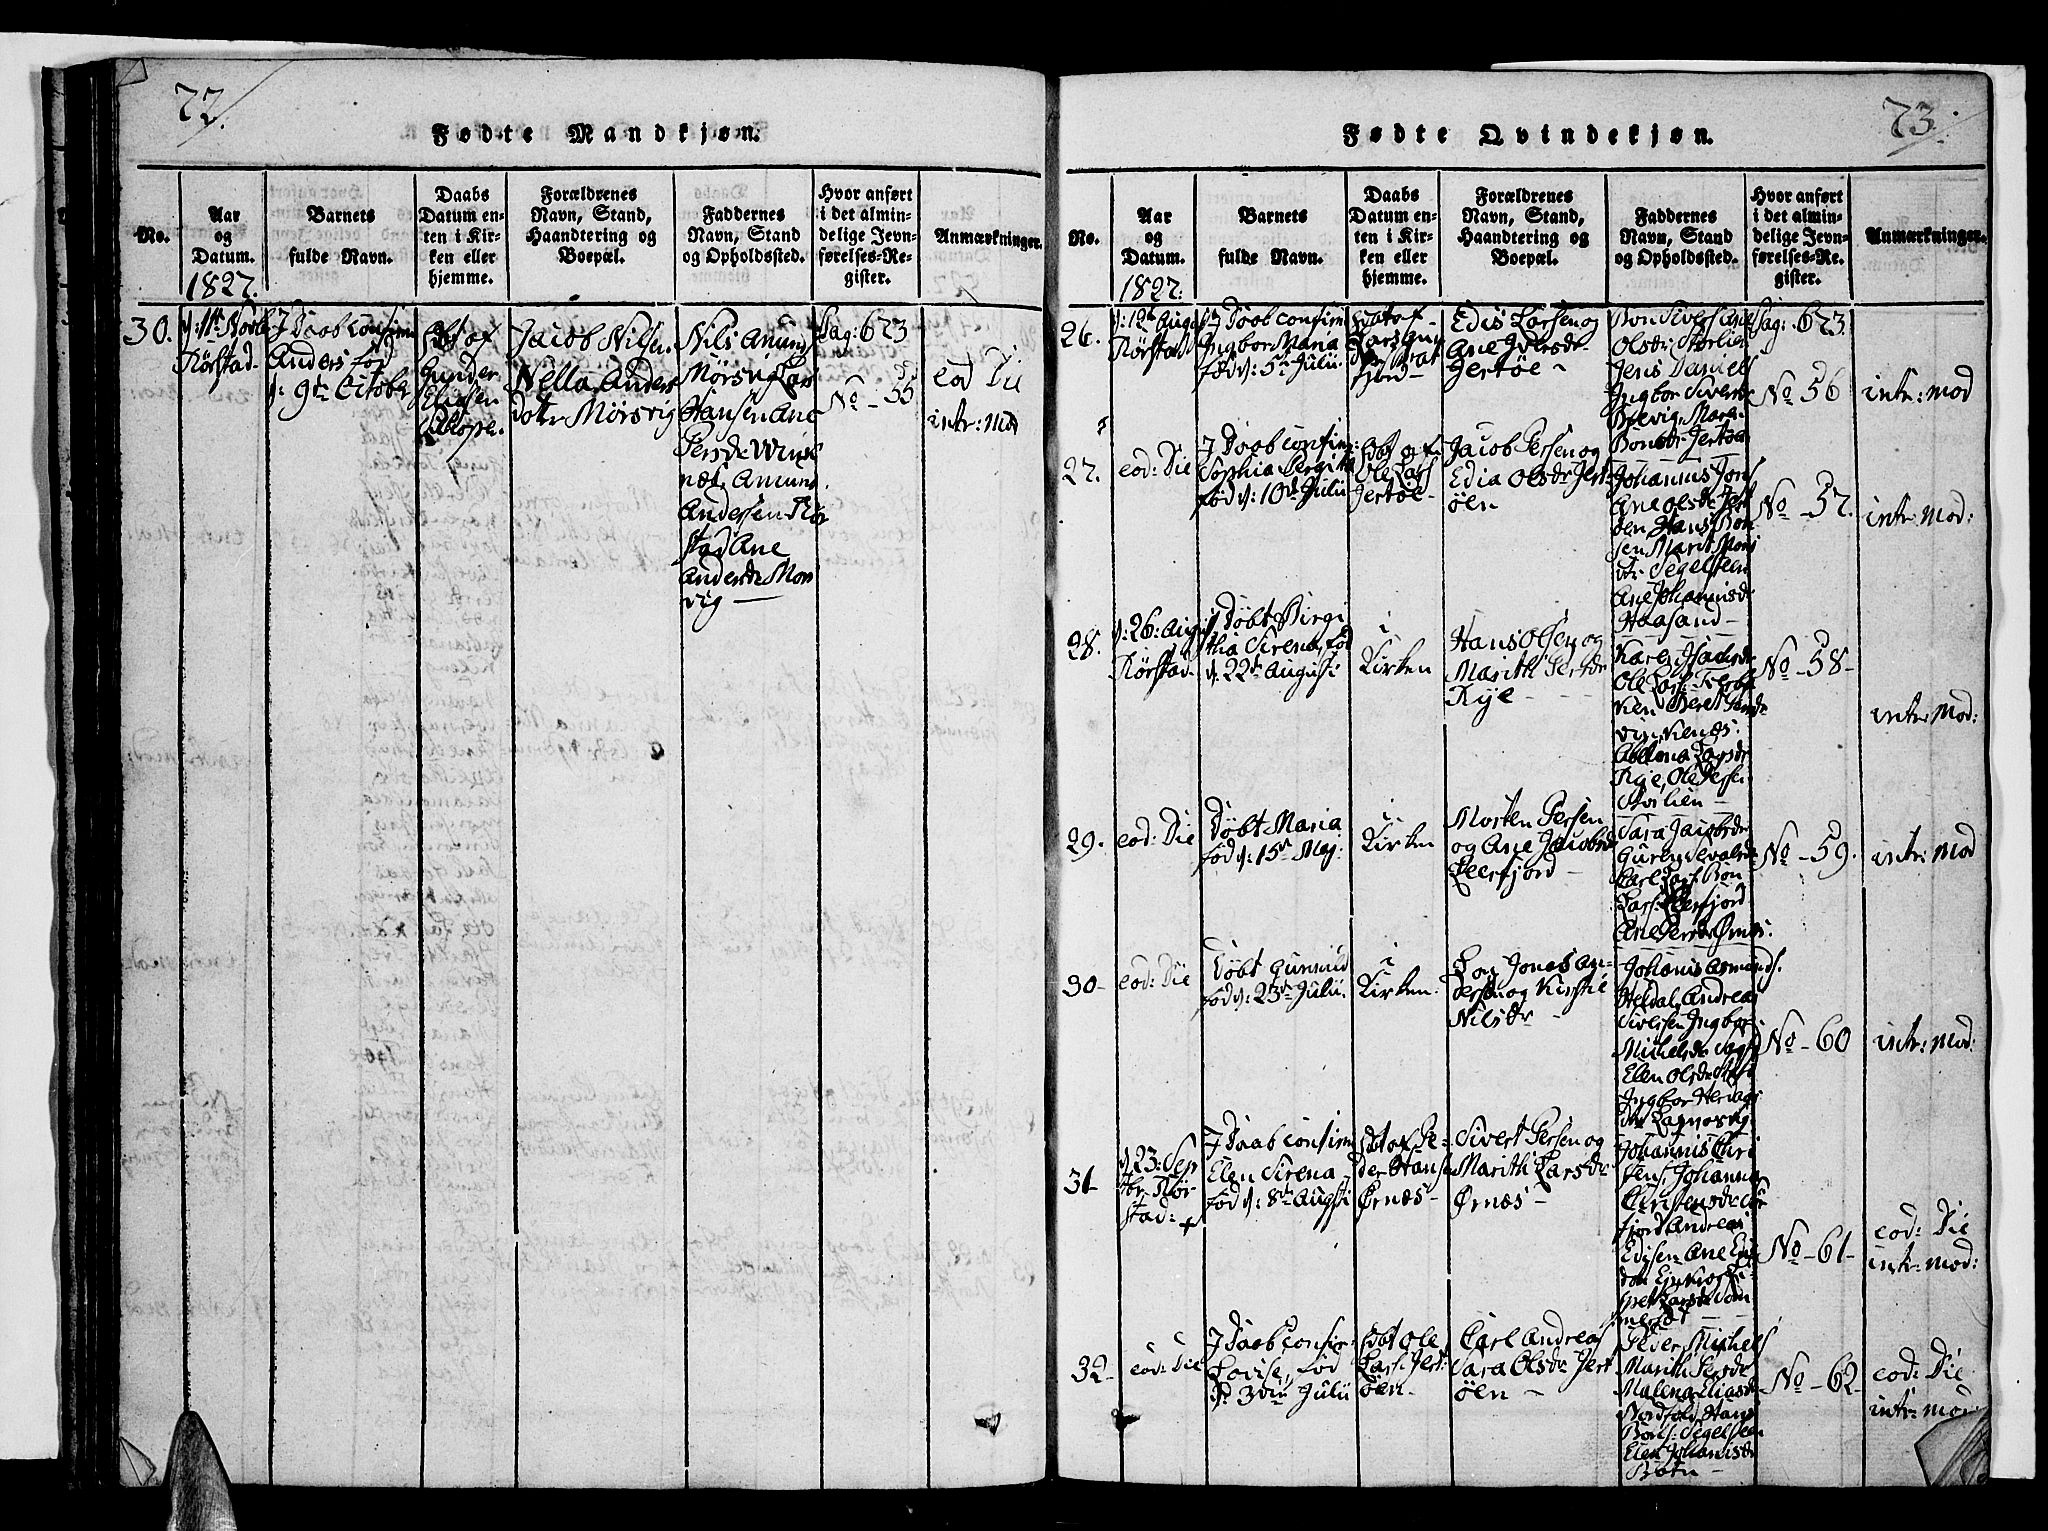 72.
Fødte Mandkjøn.
No.
Aar
og
Datum.
1827.
Barnets
fulde Navn.
Daabs
Datum en-
ten i Kir-
ken eller
hjemme.
Forældrenes
Navn, Stand,
Haandtering og
Boepæl.
Faddernes
Navn, Stand
og Opholdssted.
Hvor anført
i det almin-
delige Jevn-
førelses-Re-
gister.
Anmærkninger.
30.
Rørstad
J Daab confirm
Anders fød
d: 9de Octobr
døbt af
Gunder
Eliasen
Jacob Nilsen
Nella Anders
dottr Mørsvig
Nils Amund
Mørsvig Lars
Hansen Ane
Persdr Wins
næs, Amund
Andersen Rør
stad Ane
Andersdr Mør
vig —
Pag: 623
No - 55
eod Die
intr: mod
73.
Fødte Qvindekjøn.
No.
Aar
og
Datum.
1827.
Barnets
fulde Navn.
Daabs
Datum en-
ten i Kir-
ken eller
hjemme.
Forældrenes
Navn, Stand,
Haandtering og
Boepæl.
Faddernes
Navn, Stand
og Opholdssted.
Hvor anført
i det almin-
delige Jevn-
førelses-Re-
gister.
Anmærkninger.
26.
d: 12te Augu
Rørstad
J Daab confirm
Ingbor Maria
fød d: 5te Julii
døbt af
Lars
fjord —
Edis Larsen og
Ane Iversdr
Jertøe —
Olsdr Størlien
Jens Daniels
Ingbor Sivers
Marg.
Bonsdr Jertøen
Pag: 623.
No 56
intr: mod
27.
eod: Die
J Daab confirm
Sophia Bergitta
fød d: 10de Julii
døbt af
Ole Lars
Jertøe —
Jacob Persen og
Edia Olsdr Jert
øen
Johannis Jons
Ane Olsdr Jert
øen Hans Bon
sen Marit Mons
dtr Segelsteen
Ane Johannisdr
Haasand —
No - 57.
intr: mod:
28.
d: 26: Augus
Rørstad.
Døbt Birgi
tha Sirena, fød
d: 22de Augusti
i
Kirken
Hans Olsen og
Marith Persdr
Rye —
Karen Isachsdr
Ole Lars:
vinkenæs.
Abelona Lagsdr
Rye, Ole Persen
Størlien —
No - 58 -
intr: mod:
29.
eod: Die
Døbt Maria
fød d: 15de Maj:
i
Kirken
Morten Persen
og Ane Jacobsdr
Leerfjord —
Sara Jacobsdr
Guren Sivertsdr
Carl Lars: Bon
Lars: Leerfjord
Ane Persdr Ørnæs.
No - 59.
intr: mod
30 -
eod: Die
Døbt Gunnild
fød d: 23de Julii.
i
Kirken.
Jonas An-
dersen og Kirstie
Nilsdr —
Johanis Asmunds.
Heldal, Andreas
Sivertsen Ingbor
Michelsdr
Elen Olsdr
Ingbor Hertags
dtr
No - 60
intr: mod:
31
d 23: Sep
tbr Rør
stad:
J Daab confirm
Elen Sirena
fød d: 8de Augsti
døbt af Pe-
der Hans:
Ørnæs —
Sivert Persen og
Marith Larsdr
Ørnæs —
Johannis Chri
stens: Johanna
Christensdr Lør
fjord Andreas
Edisen Ane
Larsdr Som
merset —
No - 61 -
eod: Die
intr: mod:
32 -
eod: Die
J Daab confir:
Lovise, fød
d: 3die Julii
døbt Ole
Lars: Jert
øen -
Carl Andreas
Sara Olsdr Jert
øen —
Peder Michels
Marith Persdr
Malena Eliasdr
Nordfold, Hans
Bons: Segelsteen
Elen Johanisdr
Botn —
No - 62 -
eod: Die
intr: mod: